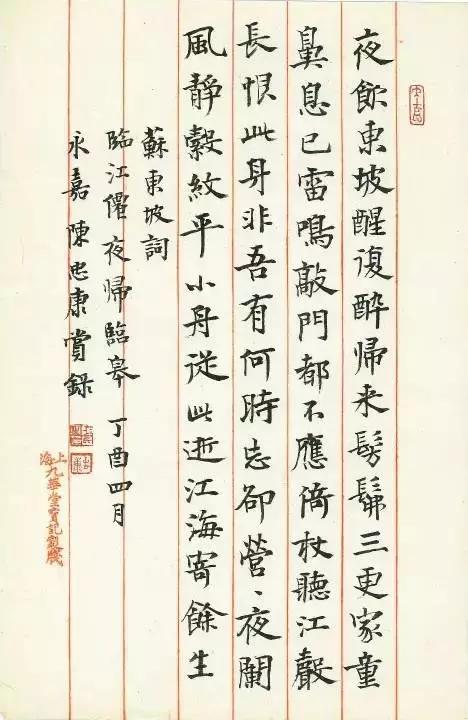 夜飲東坡醒復醉歸来髣髴三更家童
鼻息已雷鳴敲門都不應倚杖聽江聲
長恨此身非吾有何時忘卻營、夜闌
風靜縠紋平小舟從此逝江海寄餘生
蘇東坡詞
臨江僊夜歸臨皋 丁酉四月
永嘉陳忠康賞錄
上海九華堂寶記製牋